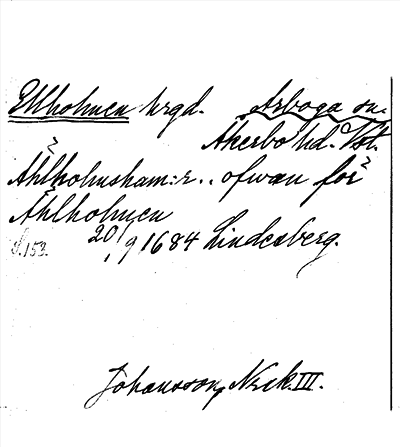 Ellholmen hrgd. Arboga sn.
Åkerbo hd. Vstl.
Åhlholmsham:r.. ofwan for
Åhlholmen
S. 153. 20/9 1684 Lindesberg.
Johansson, Noraskog III.